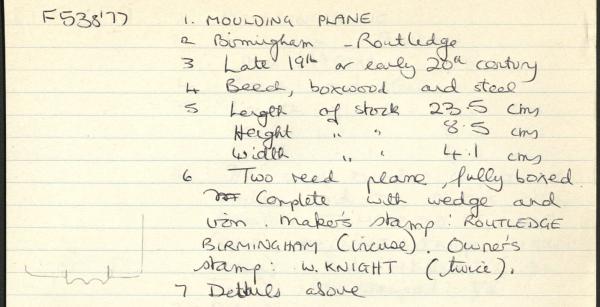 F538'77
1. MOULDING PLANE
2 Birmingham - Routledge
3 Late 19th or early 20th century
4 Beech, boxwood and steel
5 Length of stock 23.5 cms
Height " " 8.5 cms
Width " " 4.1 cms
6 Two reed plane, fully boxed.
Complete with wedge and
iron. Maker's stamp: ROUTLEDGE
BIRMINGHAM (incuse). Owner's
stamp: W. KNIGHT (twice).
7 Details above